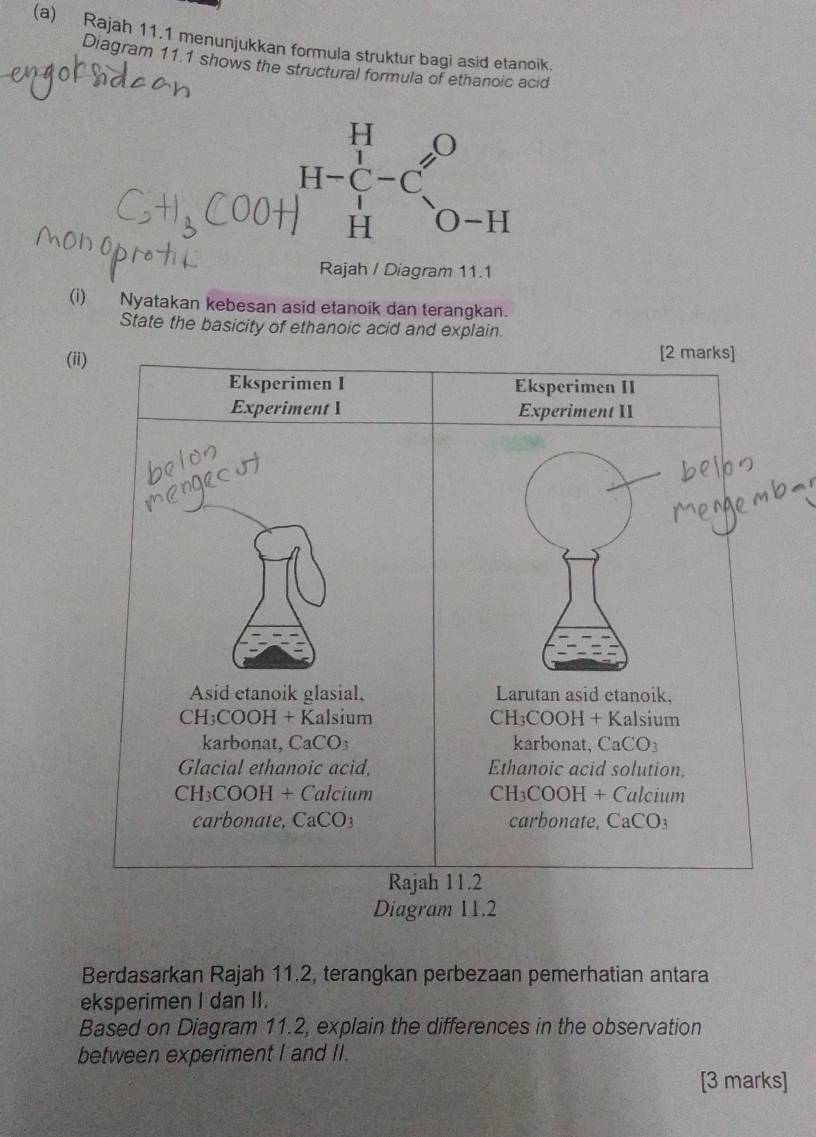 (a) Rajah 11.1 menunjukkan formula struktur bagi asid etanoik.
Diagram 11.1 shows the structural formula of ethanoic acid
H
O
H-C-C
H
O-H
monoprotik
Rajah / Diagram 11.1
(i) Nyatakan kebesan asid etanoik dan terangkan.
State the basicity of ethanoic acid and explain.
[2 marks]
(ii)
Eksperimen I
Experiment I
belon
mengecut
Asid etanoik glasial,
CH₃COOH + Kalsium
karbonat, CaCO₃
Glacial ethanoic acid,
CH₃COOH + Calcium
carbonate, CaCO₃
Eksperimen II
Experiment II
belon
Larutan asid etanoik,
CH₃COOH + Kalsium
karbonat, CaCO₃
Ethanoic acid solution,
CH₃COOH + Calcium
carbonate, CaCO₃
Rajah 11.2
Diagram 11.2
Berdasarkan Rajah 11.2, terangkan perbezaan pemerhatian antara
eksperimen I dan II.
Based on Diagram 11.2, explain the differences in the observation
between experiment I and II.
[3 marks]